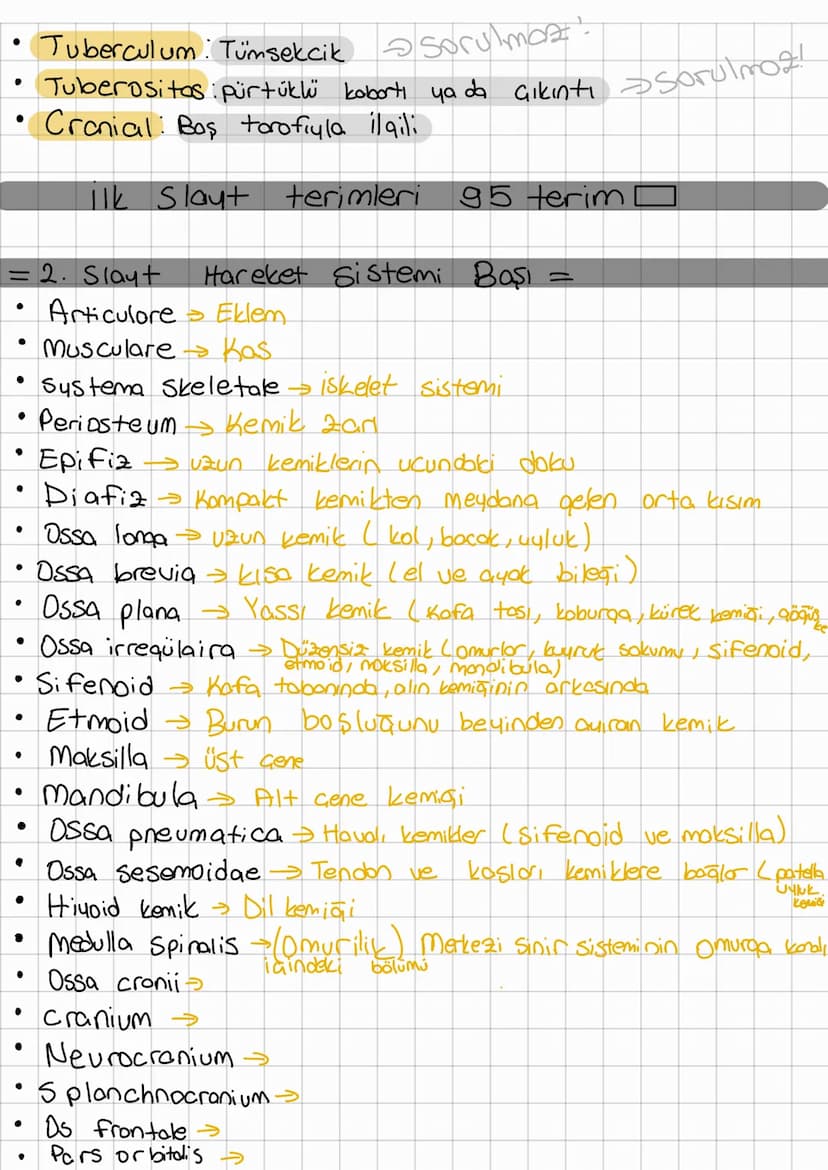 • Tuberculum: Tümsekcik → sorulmaz!
• Tuberositas: pürtüklü kabartı ya da çıkıntı → sorulmaz!
• Cranial: Baş tarafıyla ilgili
ilk Slayt terimleri 95 terim
= 2. Slayt Hareket Sistemi Başı =
• Articulare → Eklem
• Musculare → Kas
• Systema Skeletale → iskelet sistemi
• Periosteum → Kemik zarı
• Epifiz → uzun kemiklerin ucundaki doku
• Diafiz → Kompakt kemikten meydana gelen orta kısım
• Ossa longa → uzun kemik (kol, bacak, uyluk)
• Ossa brevia → kısa kemik (el ve ayak bileği)
• Ossa plana → Yassı kemik (kafa tası, kaburga, kürek kemiği, göğüs ke
• Ossa irregülaira → Düzensiz kemik (omurlar, kuyruk sokumu, sifenoid,
etmoid, maksilla, mandibula)
• Sifenoid → Kafa tabanında, alın kemiğinin arkasında
• Etmoid → Burun boşluğunu beyinden ayıran kemik
• Maksilla → üst çene
• Mandibula → Alt çene kemiği
• Ossa pneumatica → Havalı kemikler (sifenoid ve maksilla)
• Ossa sesamoidae → Tendon ve kasları kemiklere bağlar (patella
uyluk
kemiği
• Hiyoid kemik → Dil kemiği
• Medulla Spinalis → (Omurilik) Merkezi sinir sisteminin omurga kanalı
içindeki bölümü
• Ossa cranii →
• Cranium →
• Neurocranium →
• Splanchnocranium →
• Os frontale →
• Pars orbitalis →